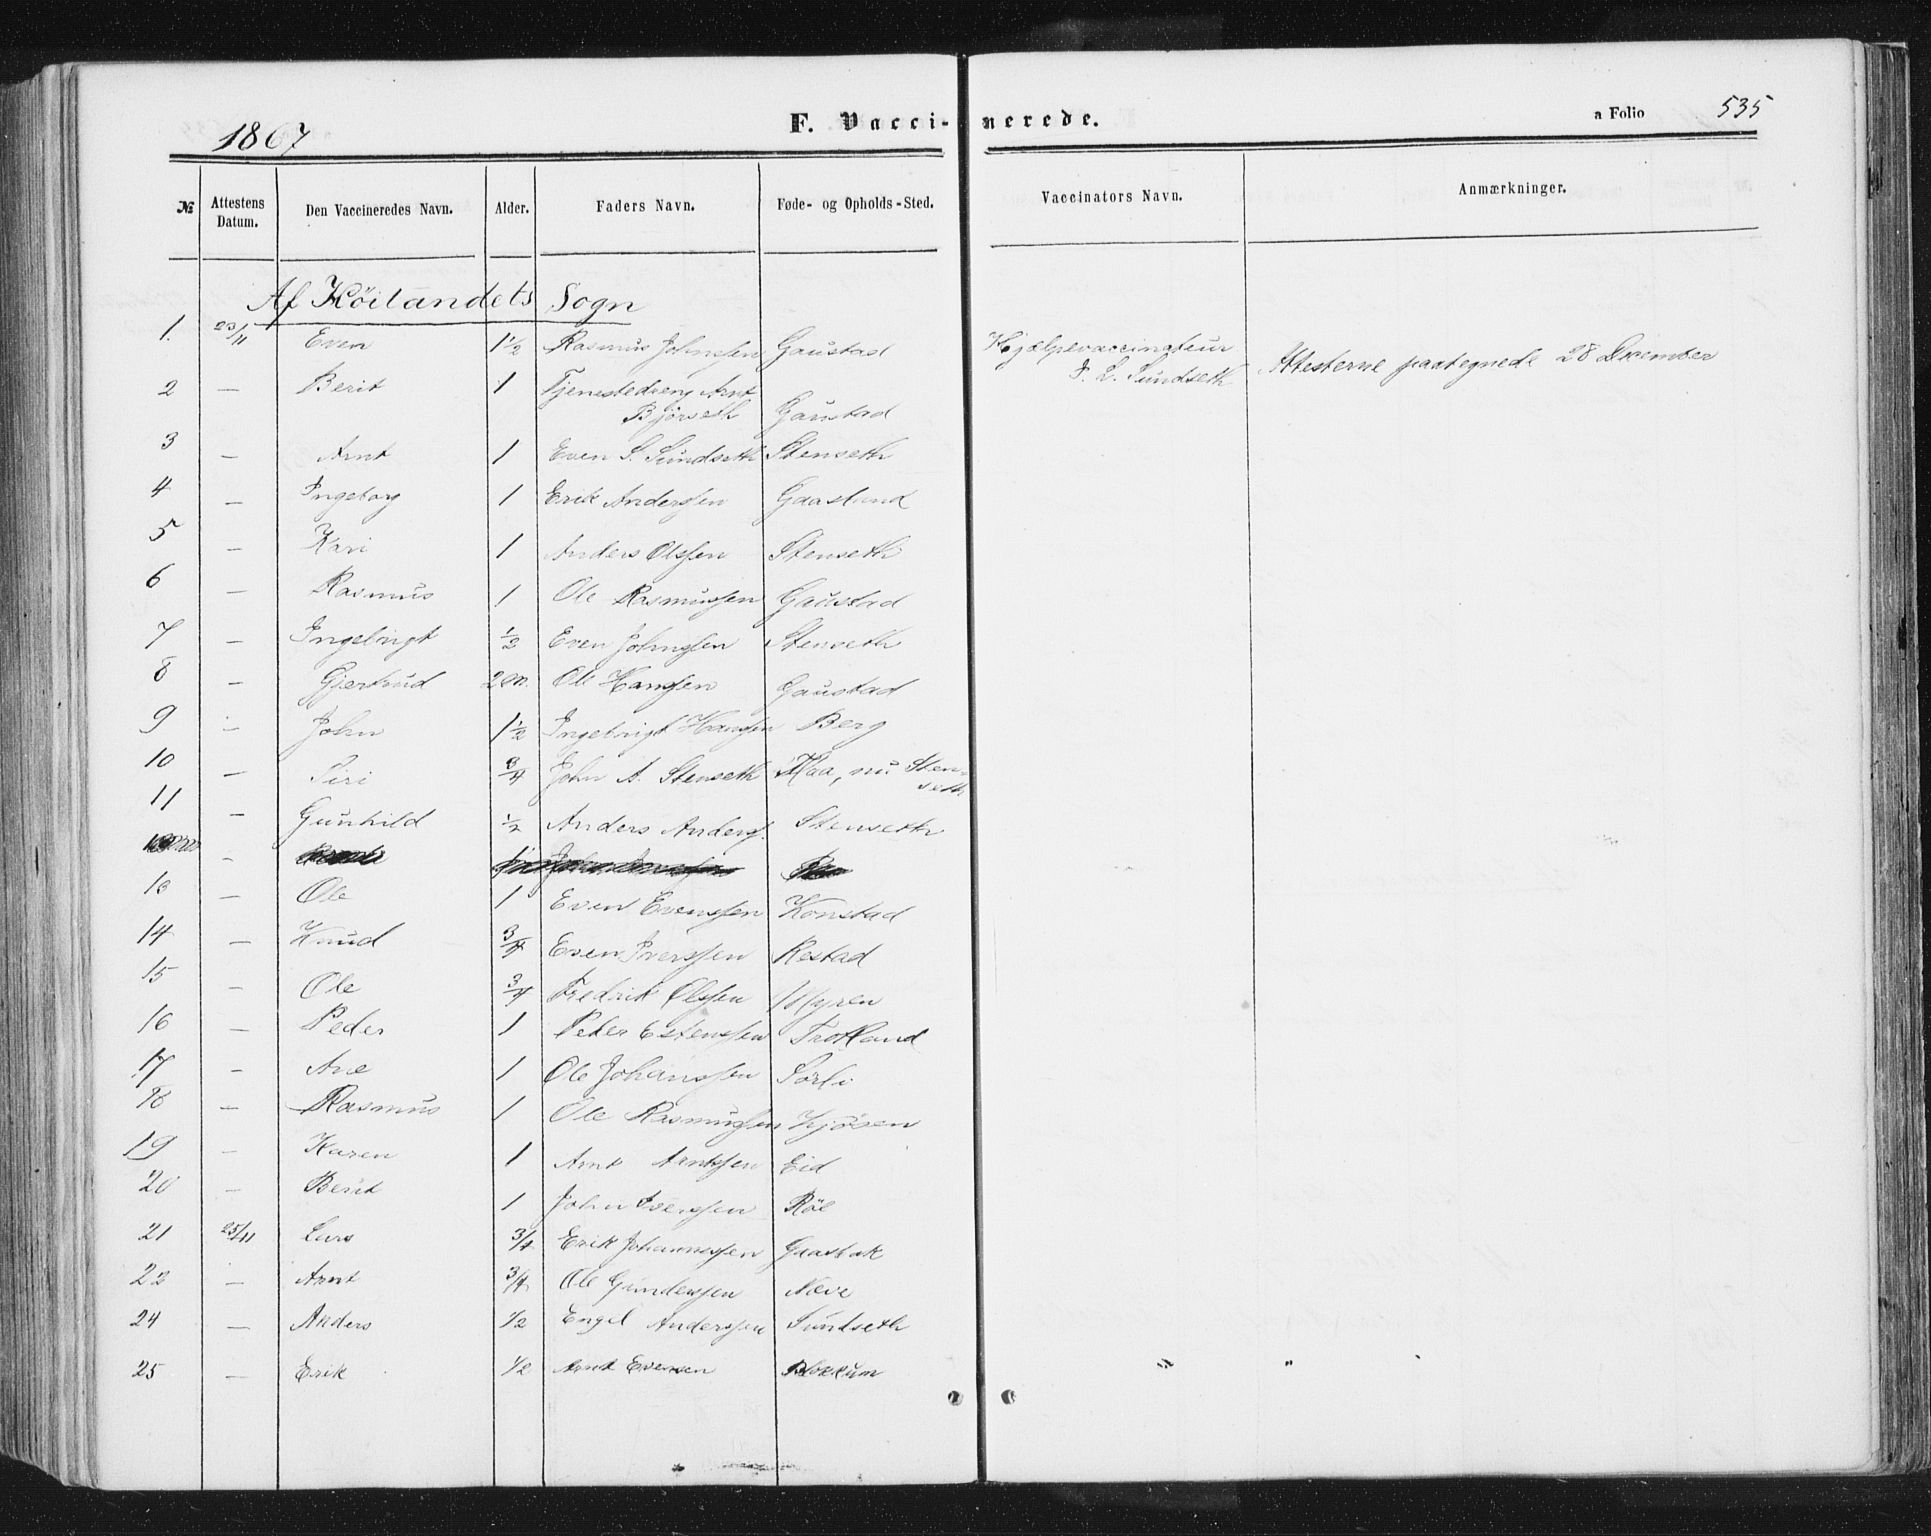 1867 F. Vaccinerede. a Folio 535
№ Attestens Datum. Den Vaccineredes Navn. Alder. Faders Navn. Føde- og Opholds-Sted. Vaccinators Navn. Anmærkninger.
Af Höilandets Sogn
1. 23/11 Even 1½ Rasmus Johnssen Gaustad Hjælpevaccinateur
P. L. Sundseth Attesterne paategnede 28 December
2 — Berit 1 Tjenestedreng Arnt
Bjørseth Gaustad
3 — Arnt 1 Even S. Sundseth Stenseth
4 — Ingeborg 1 Erik Anderssen Gaaslund
5 — Kari 1 Anders Olssen Stenseth
6 — Rasmus 1 Ole Rasmussen Gaustad
7 — Ingebrigt ½ Even Johnssen Stenseth
8 — Gjertrud 2 m. Ole Hanssen Gaustad
9 — John 1½ Ingebrigt Hanssen Berg
10 — Siri ¾ John A. Stenseth Maa, nu Sten-
seth
11 — Gunhild ½ Anders Anderss. Stenseth
—
13 — Ole 1 Even Evenssen Konstad
14 — Knud ¾ Even Iverssen Restad
15 — Ole ¾ Fredrik Olssen Myren
16 — Peder 1 Peter Estenssen Trotland
17 — Ane 1 Ole Johanssen Sørli
18 — Rasmus 1 Ole Rasmussen Kjøsen
19 — Karen 1 Arnt Arntssen Eid
20 — Berit 1 John Iverssen Röe
21 25/11 Lars 3/4 Erik Johannessen Graabak
22 — Arnt 3/4 Ole Gunderssen Næve
24 — Anders 1/2 Engel Anderssen Sundseth
25 — Erik 1/2 Arnt Evensen " "